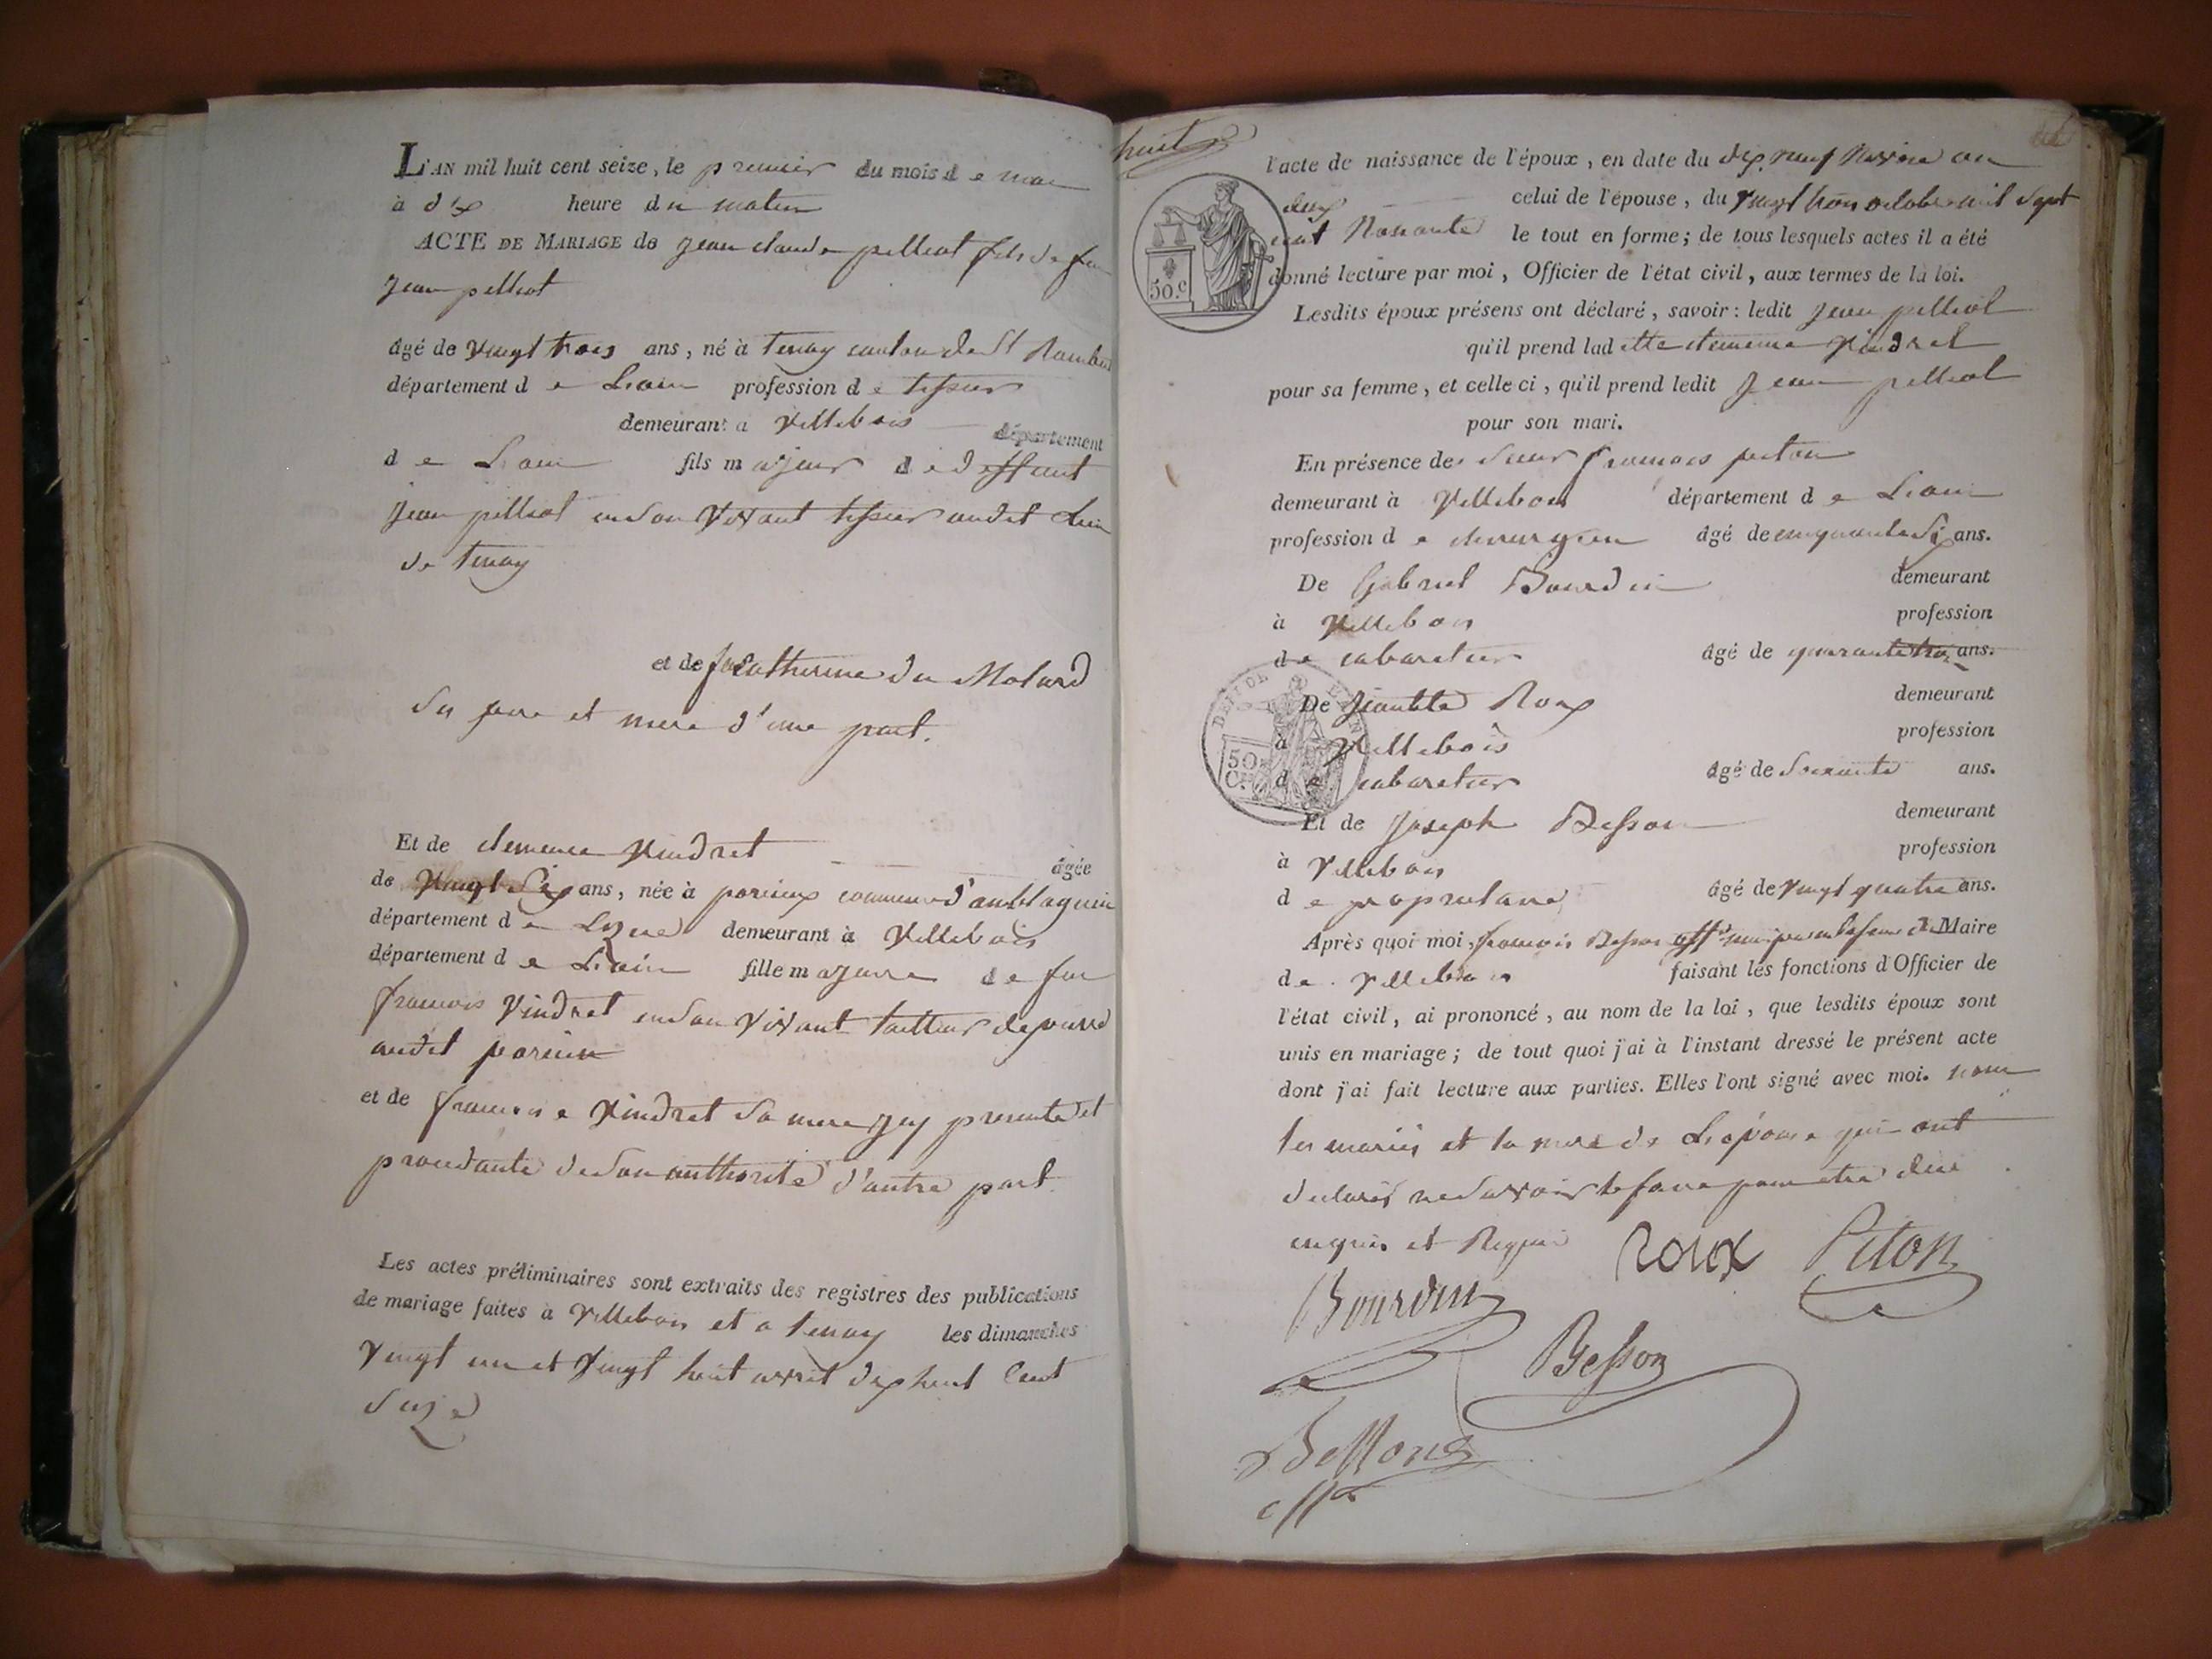 L'AN mil huit cent seize, le premier du mois de mai
à dix heure du matin
ACTE DE MARIAGE de jean claude pelliat fils de feu
jean pelliat
âgé de vingt trois ans, né à tenay canton de St Rambert
département de Lain profession de tissier
demeurant a villebois département
de Lain fils majeur de deffunt
jean pelliat en son vivant tissier audit lieu
de tenay
et de feue catherine du Molard
ses pere et mere d'une part.
Et de clemence vindret âgée
de vingt six ans, née à porcieux commune d'amblagnieu
département de Lizere demeurant à villebois
département de Lain fille majeure de feu
francois vindret en son vivant tailleur de pierre
audit porcieu
et de francoise vindret sa mere icy presente et
procedante de son authorité d'autre part.
Les actes préliminaires sont extraits des registres des publications
de mariage faites à villebois et a tenay les dimanches
vingt un et vingt huit avril dix huit cent
seize
huit
l'acte de naissance de l'époux, en date du dix neuf nivose an
deux celui de l'épouse, du vingt trois octobre mil sept
cent nonante le tout en forme; de tous lesquels actes il a été
50.c
donné lecture par moi, Officier de l'état civil, aux termes de la loi.
Lesdits époux présens ont déclaré, savoir: ledit jean pelliat
qu'il prend ladette clemence vindret
pour sa femme, et celle ci, qu'il prend ledit jean pelliat
pour son mari.
En présence de sieur francois piton
demeurant à villebois département de Lain
profession de chirurgien âgé de cinquante six ans.
De Gabriel Bourdin demeurant
à villebois profession
de cabaretier âgé de quarante trois ans.
De jeantete Roux demeurant
à villebois profession
50 C.
de cabaretier âgé de soixante ans.
Et de joseph Besson demeurant
à villebois profession
de propriétaire âgé de vingt quatre ans.
Après quoi moi, francois Besson Maire
de villebois faisant les fonctions d'Officier de
l'état civil, ai prononcé, au nom de la loi, que lesdits époux sont
unis en mariage; de tout quoi j'ai à l'instant dressé le présent acte
dont j'ai fait lecture aux parties. Elles l'ont signé avec moi. non
les mariés et la mere de Lepouse qui ont
declarés ne savoir le faire pour etre de ce
enquis et Requis
Roux Piton
Bourdin
Besson
Bessone